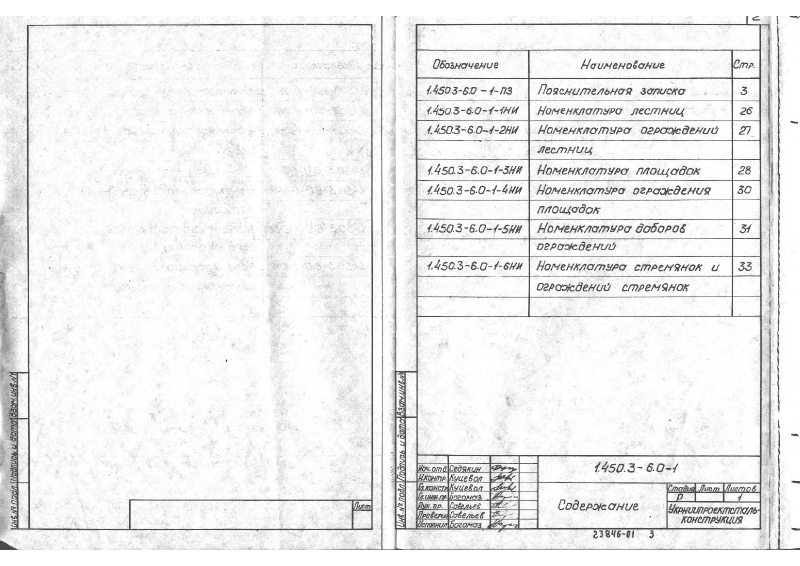 Инв.№ подл. Подпись и дата Взам.инв.№
Лист
2
Обозначение Наименование Стр.
1.450.3-6.0-1-ПЗ Пояснительная записка 3
1.450.3-6.0-1-1НИ Номенклатура лестниц 26
1.450.3-6.0-1-2НИ Номенклатура ограждений 27
лестниц
1.450.3-6.0-1-3НИ Номенклатура площадок 28
1.450.3-6.0-1-4НИ Номенклатура ограждения 30
площадок
1.450.3-6.0-1-5НИ Номенклатура доборов 31
ограждений
1.450.3-6.0-1-6НИ Номенклатура стремянок и 33
ограждений стремянок
Инв.№ подл. Подпись и дата Взам.инв.№
Нач.отд. Седякин
Н.контр. Куцевол
Гл.констр. Куцевол
Гл.инж.пр. Богомаз
Рук.гр. Савельев
Провери Савельев
Исполнил Богомаз
1.450.3-6.0-1
Содержание
Стадия Лист Листов
Р 1
Укрниипроектсталь-
конструкция
23846-01 3